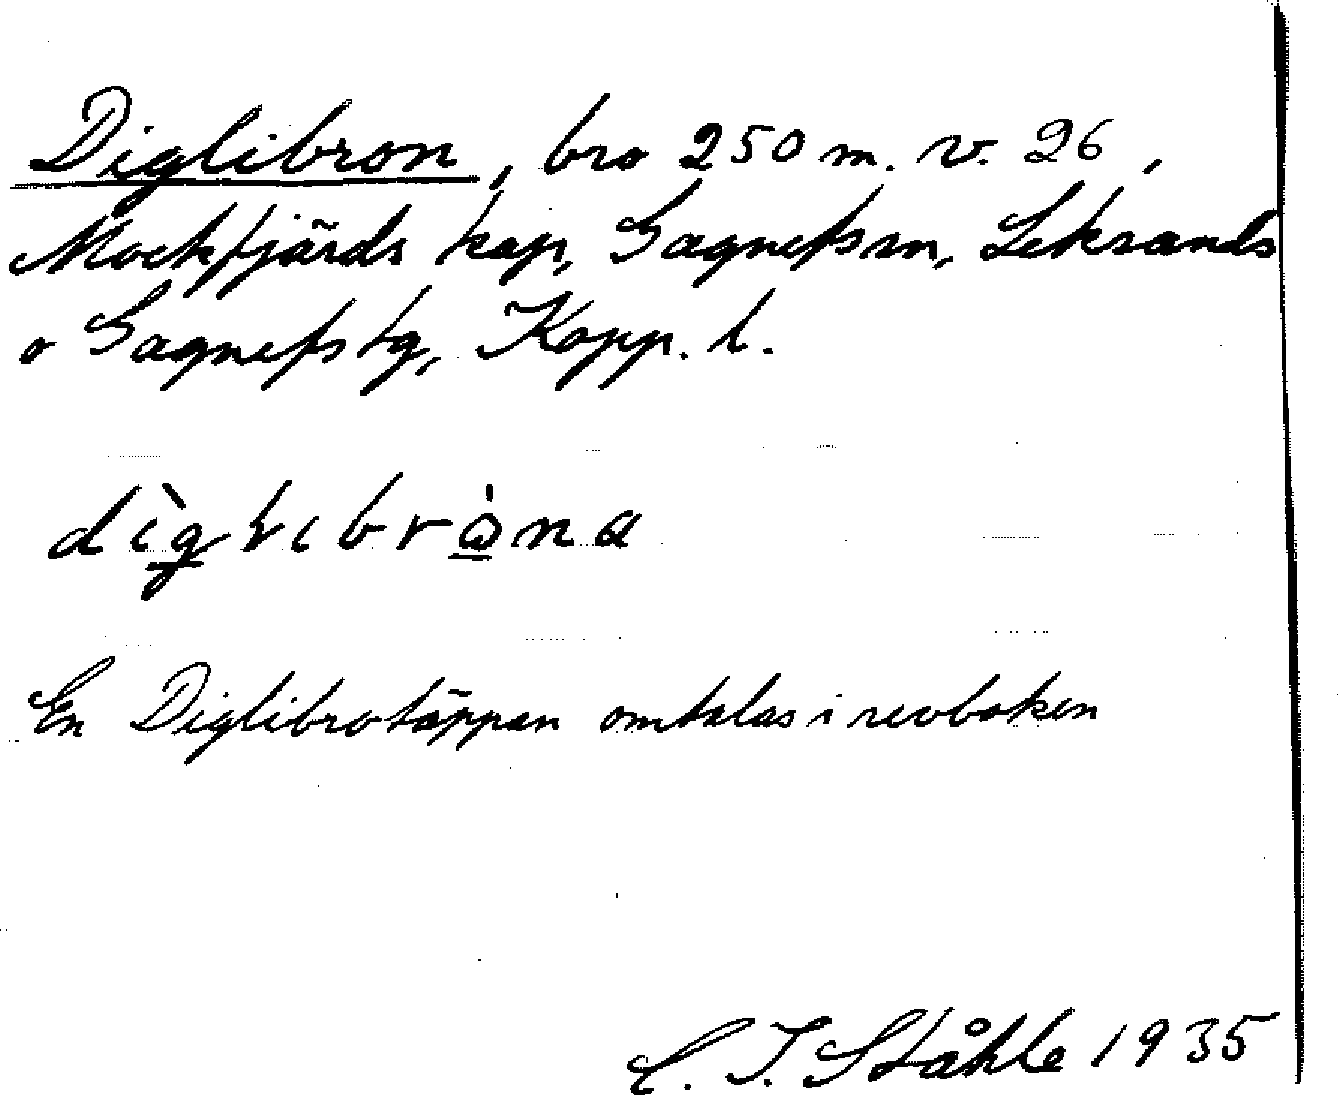 Diglibron, bro 250 m. v. 26,
Mockfjärds kap, Gagnefs sn, Leksands
o Gagnefs tg, Kopp. l.
En Diglibrotäppan omtalas i revboken
C. I. Ståhle 1935